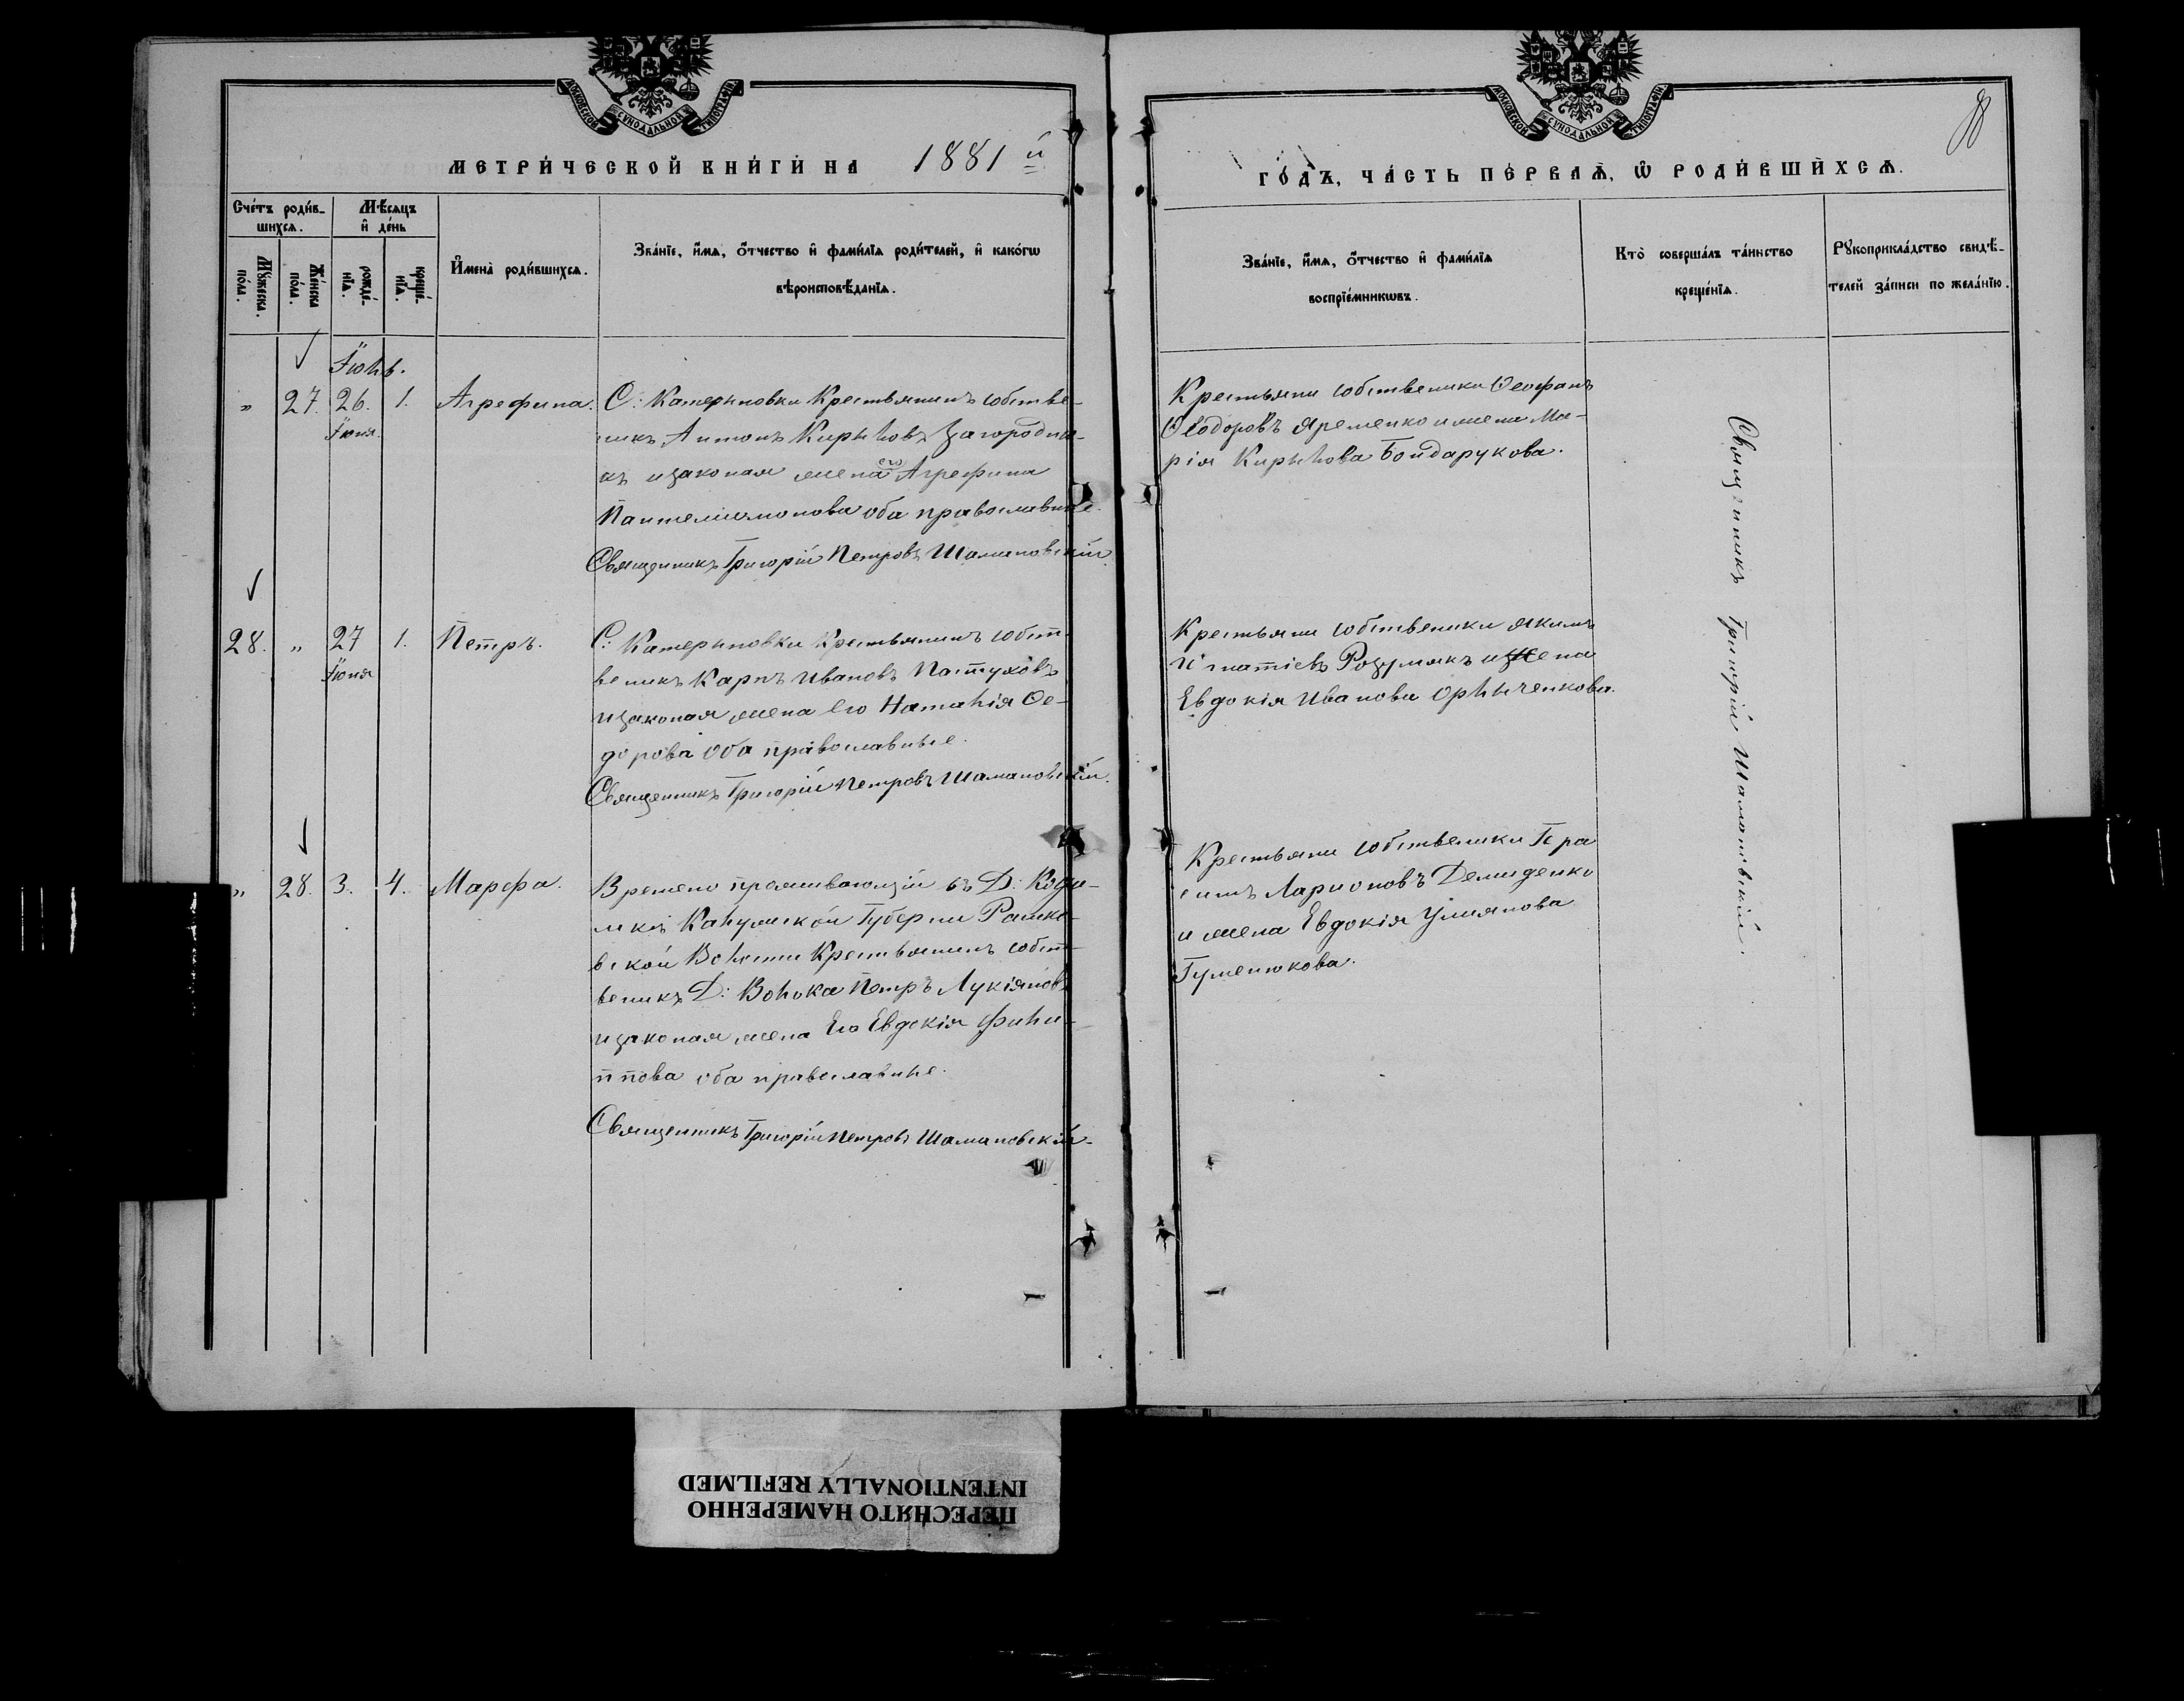 МОСКОВСКОЙ СѴНОДАЛЬНОЙ ТИПОГРАФІИ
МЕТРИ́ЧЕСКОЙ КНИ́ГИ НА 1881 й
Сче́тъ роди́вшихся.
Мѣ́сяцъ и де́нь
Му́жеска по́ла.
Же́нска по́ла.
рожде́нїя.
креще́нїя.
Имена̀ роди́вшихся.
Зва́нїе, и́мя, о́тчество и фами́лїя роди́телей, и како́гѡ
вѣроисповѣ́данїя.
Їюль.
" 27. 26. 1. Агрефина. С: Катериновки Крестьянинъ собстве-
Їюня
никъ Антонъ Кириловъ Загородню-
къ и законая жена его Агрефина
Пантелиомонова оба православные.
Священникъ Григорій Петровъ Шамановскій
28. " 27 1. Петръ. С: Катериновки Крестьянинъ собст-
Їюня
веникъ Карпъ Ивановъ Пастуховъ
и законая жена Его Наталія Ѳе-
дорова Оба православные.
Священникъ Григорій Петровъ Шамановскій.
" 28. 3. 4. Марѳа. Времено проживающій въ Д:
Калужской Губерни
вской Волости Крестьянинъ собст-
веникъ Д: Волока Петръ Лукіяновъ
и законая жена Его Евдокія Фили-
ппова оба православные.
Священникъ Григорій Петровъ Шамановскій.
МОСКОВСКОЙ СѴНОДАЛЬНОЙ ТИПОГРАФІИ
ГО́ДЪ, ЧА́СТЬ ПЕ́РВАЯ, Ѡ РОДИ́ВШИХСЯ.
Зва́нїе, и́мя, о́тчество и фами́лїя
воспрїе́мникѡвъ.
Кто̀ соверша́лъ та́инство
креще́нїя.
Рꙋкоприкла́дство свидѣ́-
телей за́писи по жела́нїю.
Крестьяни собственики Ѳеофанъ
Ѳеодоровъ Яременко и жена Ма-
рія Кирилова Бондарукова.
Крестьяни собственики Якимъ
Игнатіевъ Розумякъ и жена
Евдокія Иванова
Крестьяни собственики Гера
симъ Ларионовъ Демиденко
и жена Евдокія Улиянова
Гуменюкова.
Священникъ Григорій Шамановскій.
ПЕРЕСНЯТО НАМЕРЕННО
INTENTIONALLY REFILMED